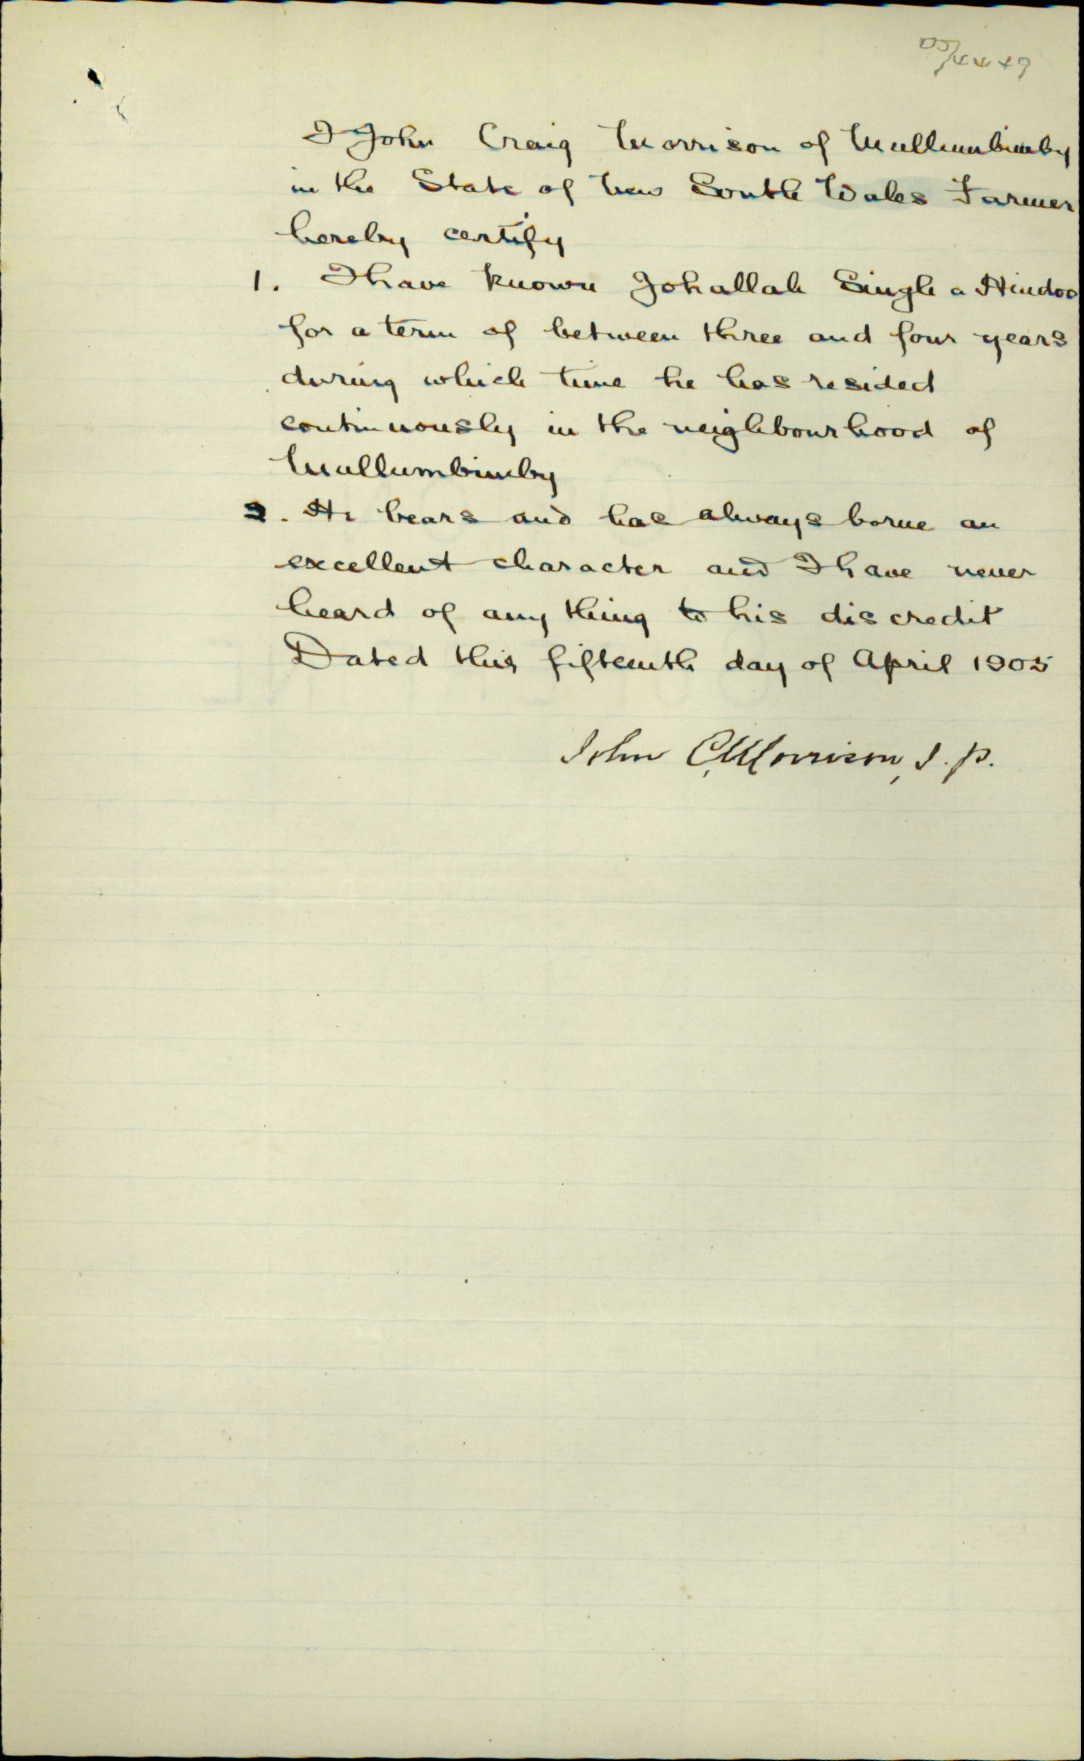 05/4447
I John Craig Morrison of Mullumbimby
in the State of New South Wales Farmer
hereby certify
1. I have known Johallah Singh a Hindoo
for a term of between three and four years
during which time he has resided
continuously in the neighbourhood of
Mullumbimby
2. He bears and has always borne an
excellent character and I have never
heard of any thing to his discredit
Dated this fifteenth day of April 1905
John C. Morrison, J. P.